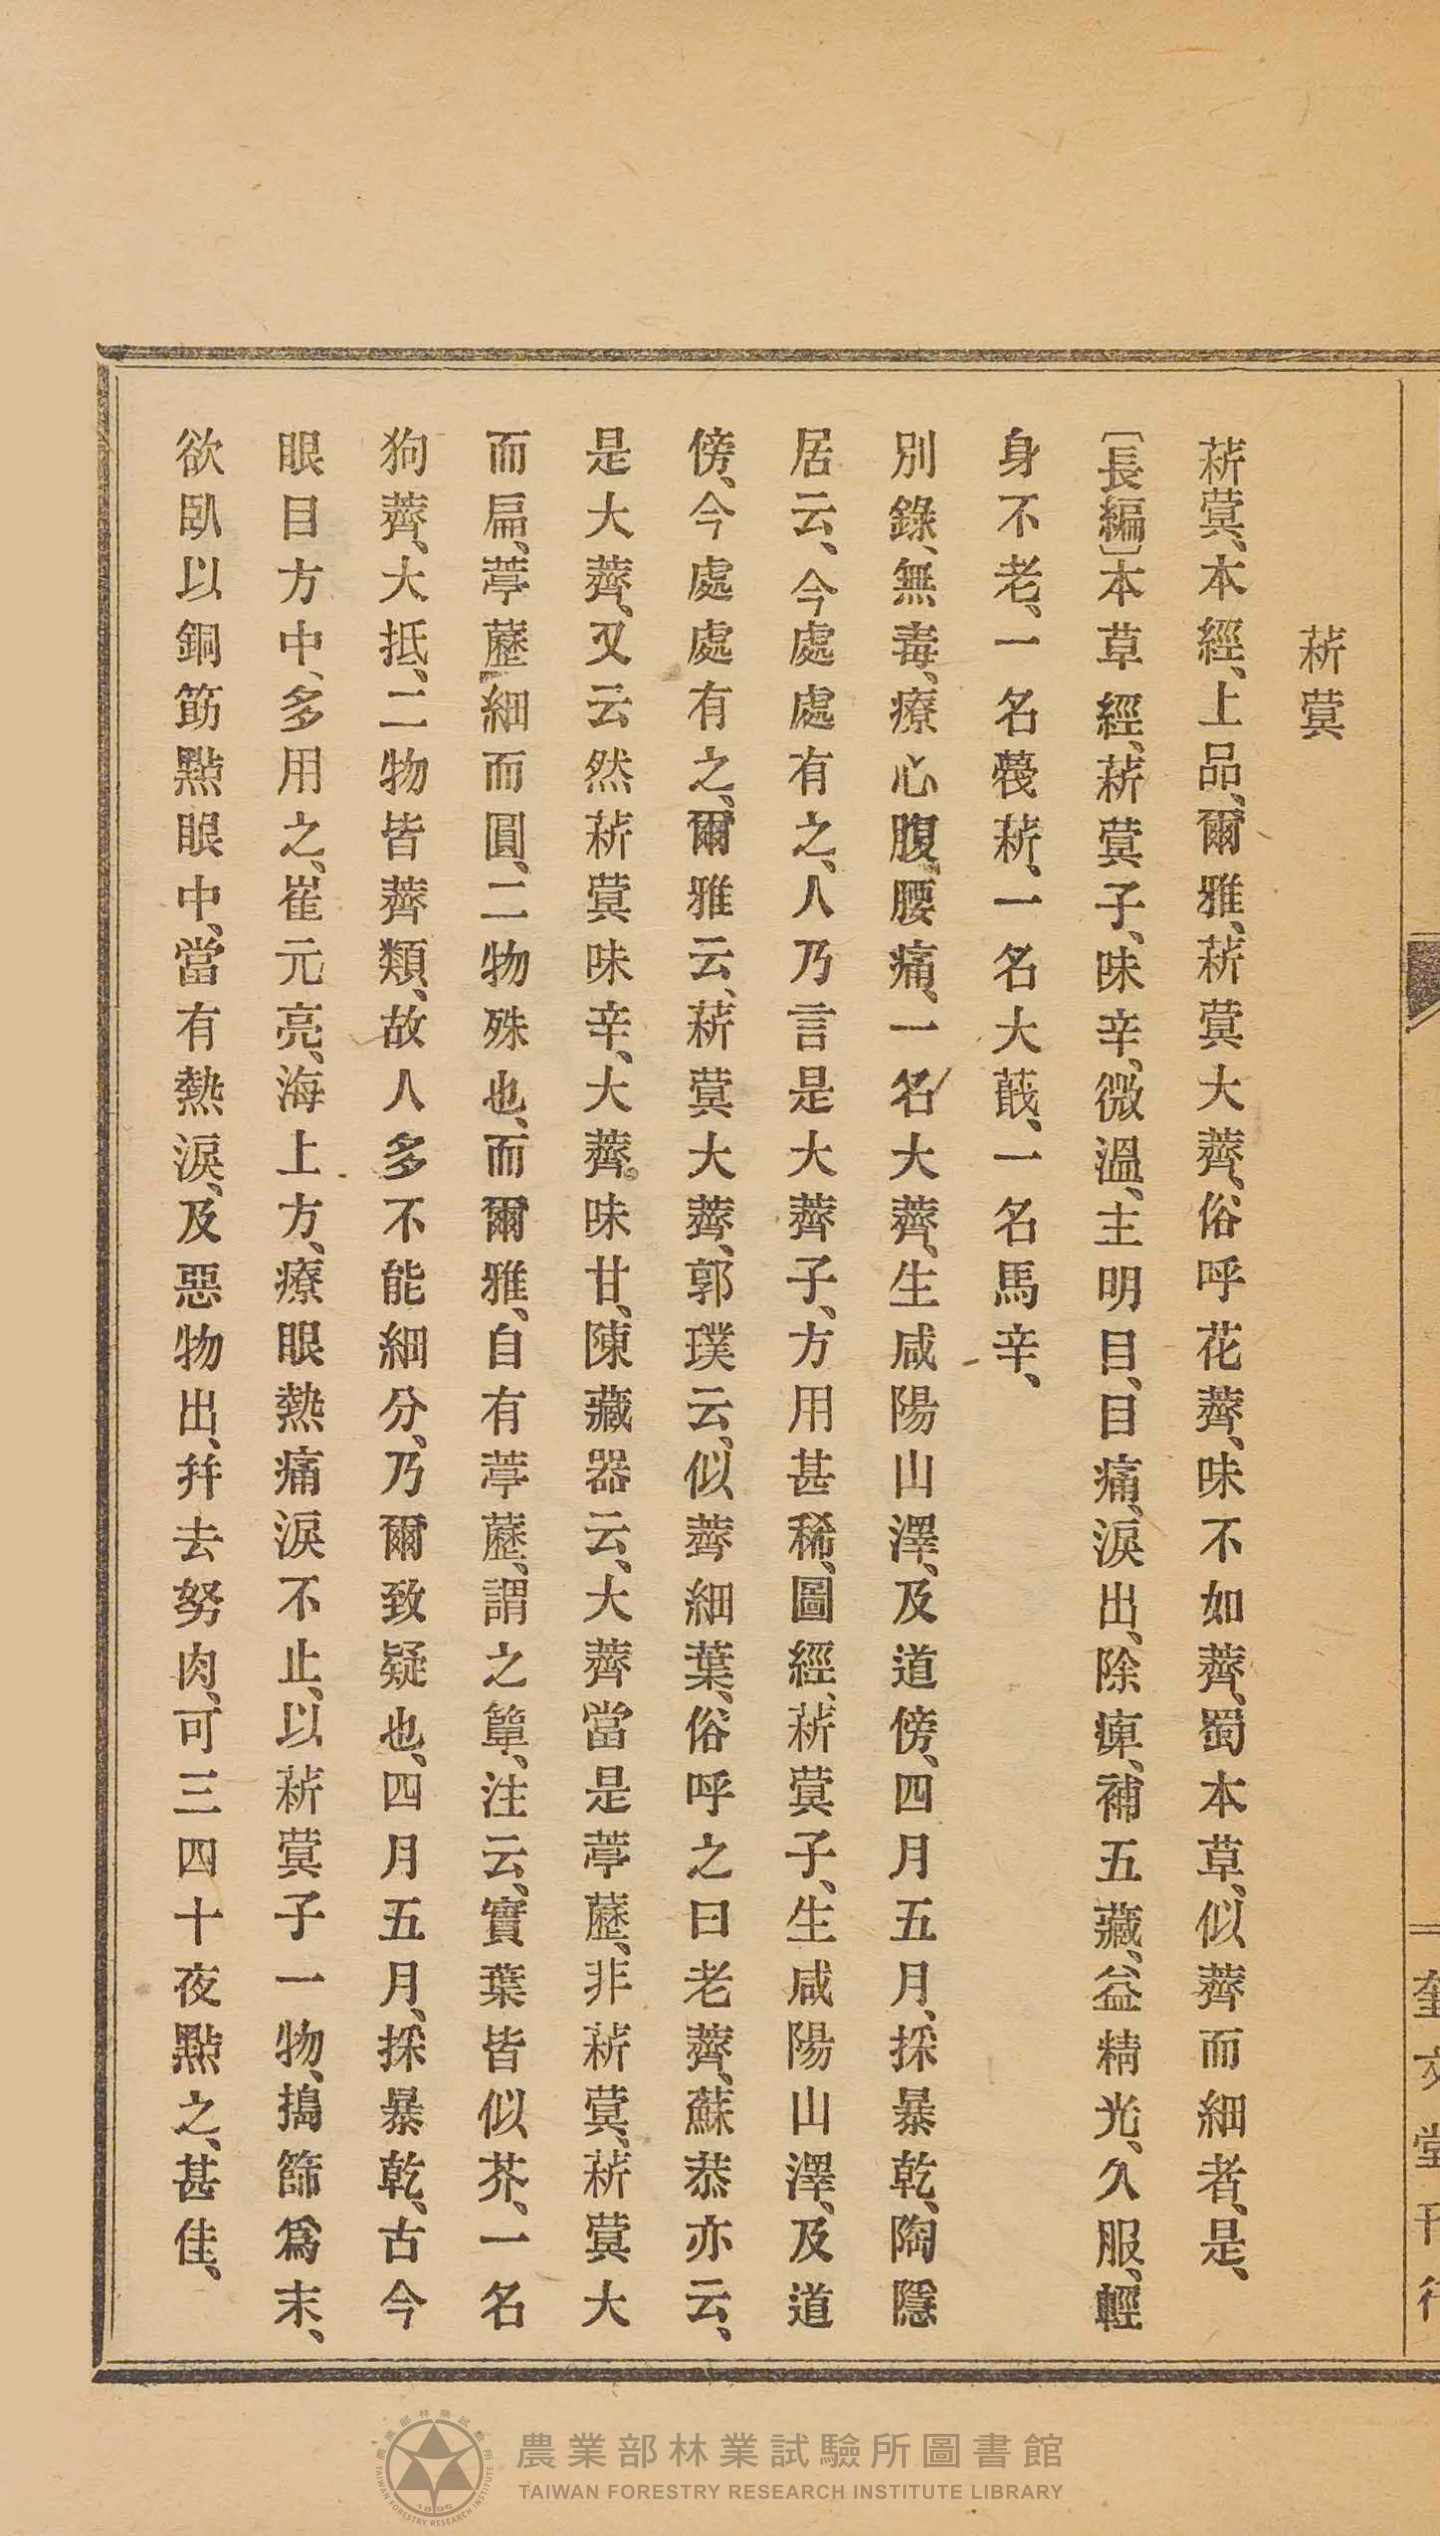 菥蓂
菥蓂、本經、上品、爾雅、菥蓂大薺、俗呼花薺、味不如薺、蜀本草、似薺而細者、是、
〔長編〕本草經、菥蓂子、味辛、微溫、主明目、目痛、淚出、除痺、補五藏、益精光、久服、輕
身不老、一名蔑菥、一名大蕺、一名馬辛、
別錄、無毒、療心腹、腰痛、一名大薺、生咸陽山澤、及道傍、四月五月、採暴乾、陶隱
居云、今處處有之、人乃言是大薺子、方用甚稀、圖經、菥蓂子、生咸陽山澤、及道
傍、今處處有之、爾雅云、菥蓂大薺、郭璞云、似薺細葉、俗呼之曰老薺、蘇恭亦云、
是大薺、又云然菥蓂味辛、大薺。味甘、陳藏器云、大薺當是葶藶、非菥蓂、菥蓂大
而扁、葶藶細而圓、二物殊也、而爾雅、自有葶藶、謂之蕇、注云、實葉皆似芥、一名
狗薺、大抵、二物皆薺類、故人多不能細分、乃爾致疑也、四月五月、採暴乾、古今
眼目方中、多用之、崔元亮、海上方、療眼熱痛淚不止、以菥蓂子一物、搗篩爲末、
欲臥以銅筯點眼中、當有熱淚、及惡物出、幷去努肉、可三四十夜點之、甚佳、
奎文堂刊行
農業部林業試驗所圖書館
TAIWAN FORESTRY RESEARCH INSTITUTE LIBRARY
農業部林業試驗所
TAIWAN FORESTRY RESEARCH INSTITUTE
1895